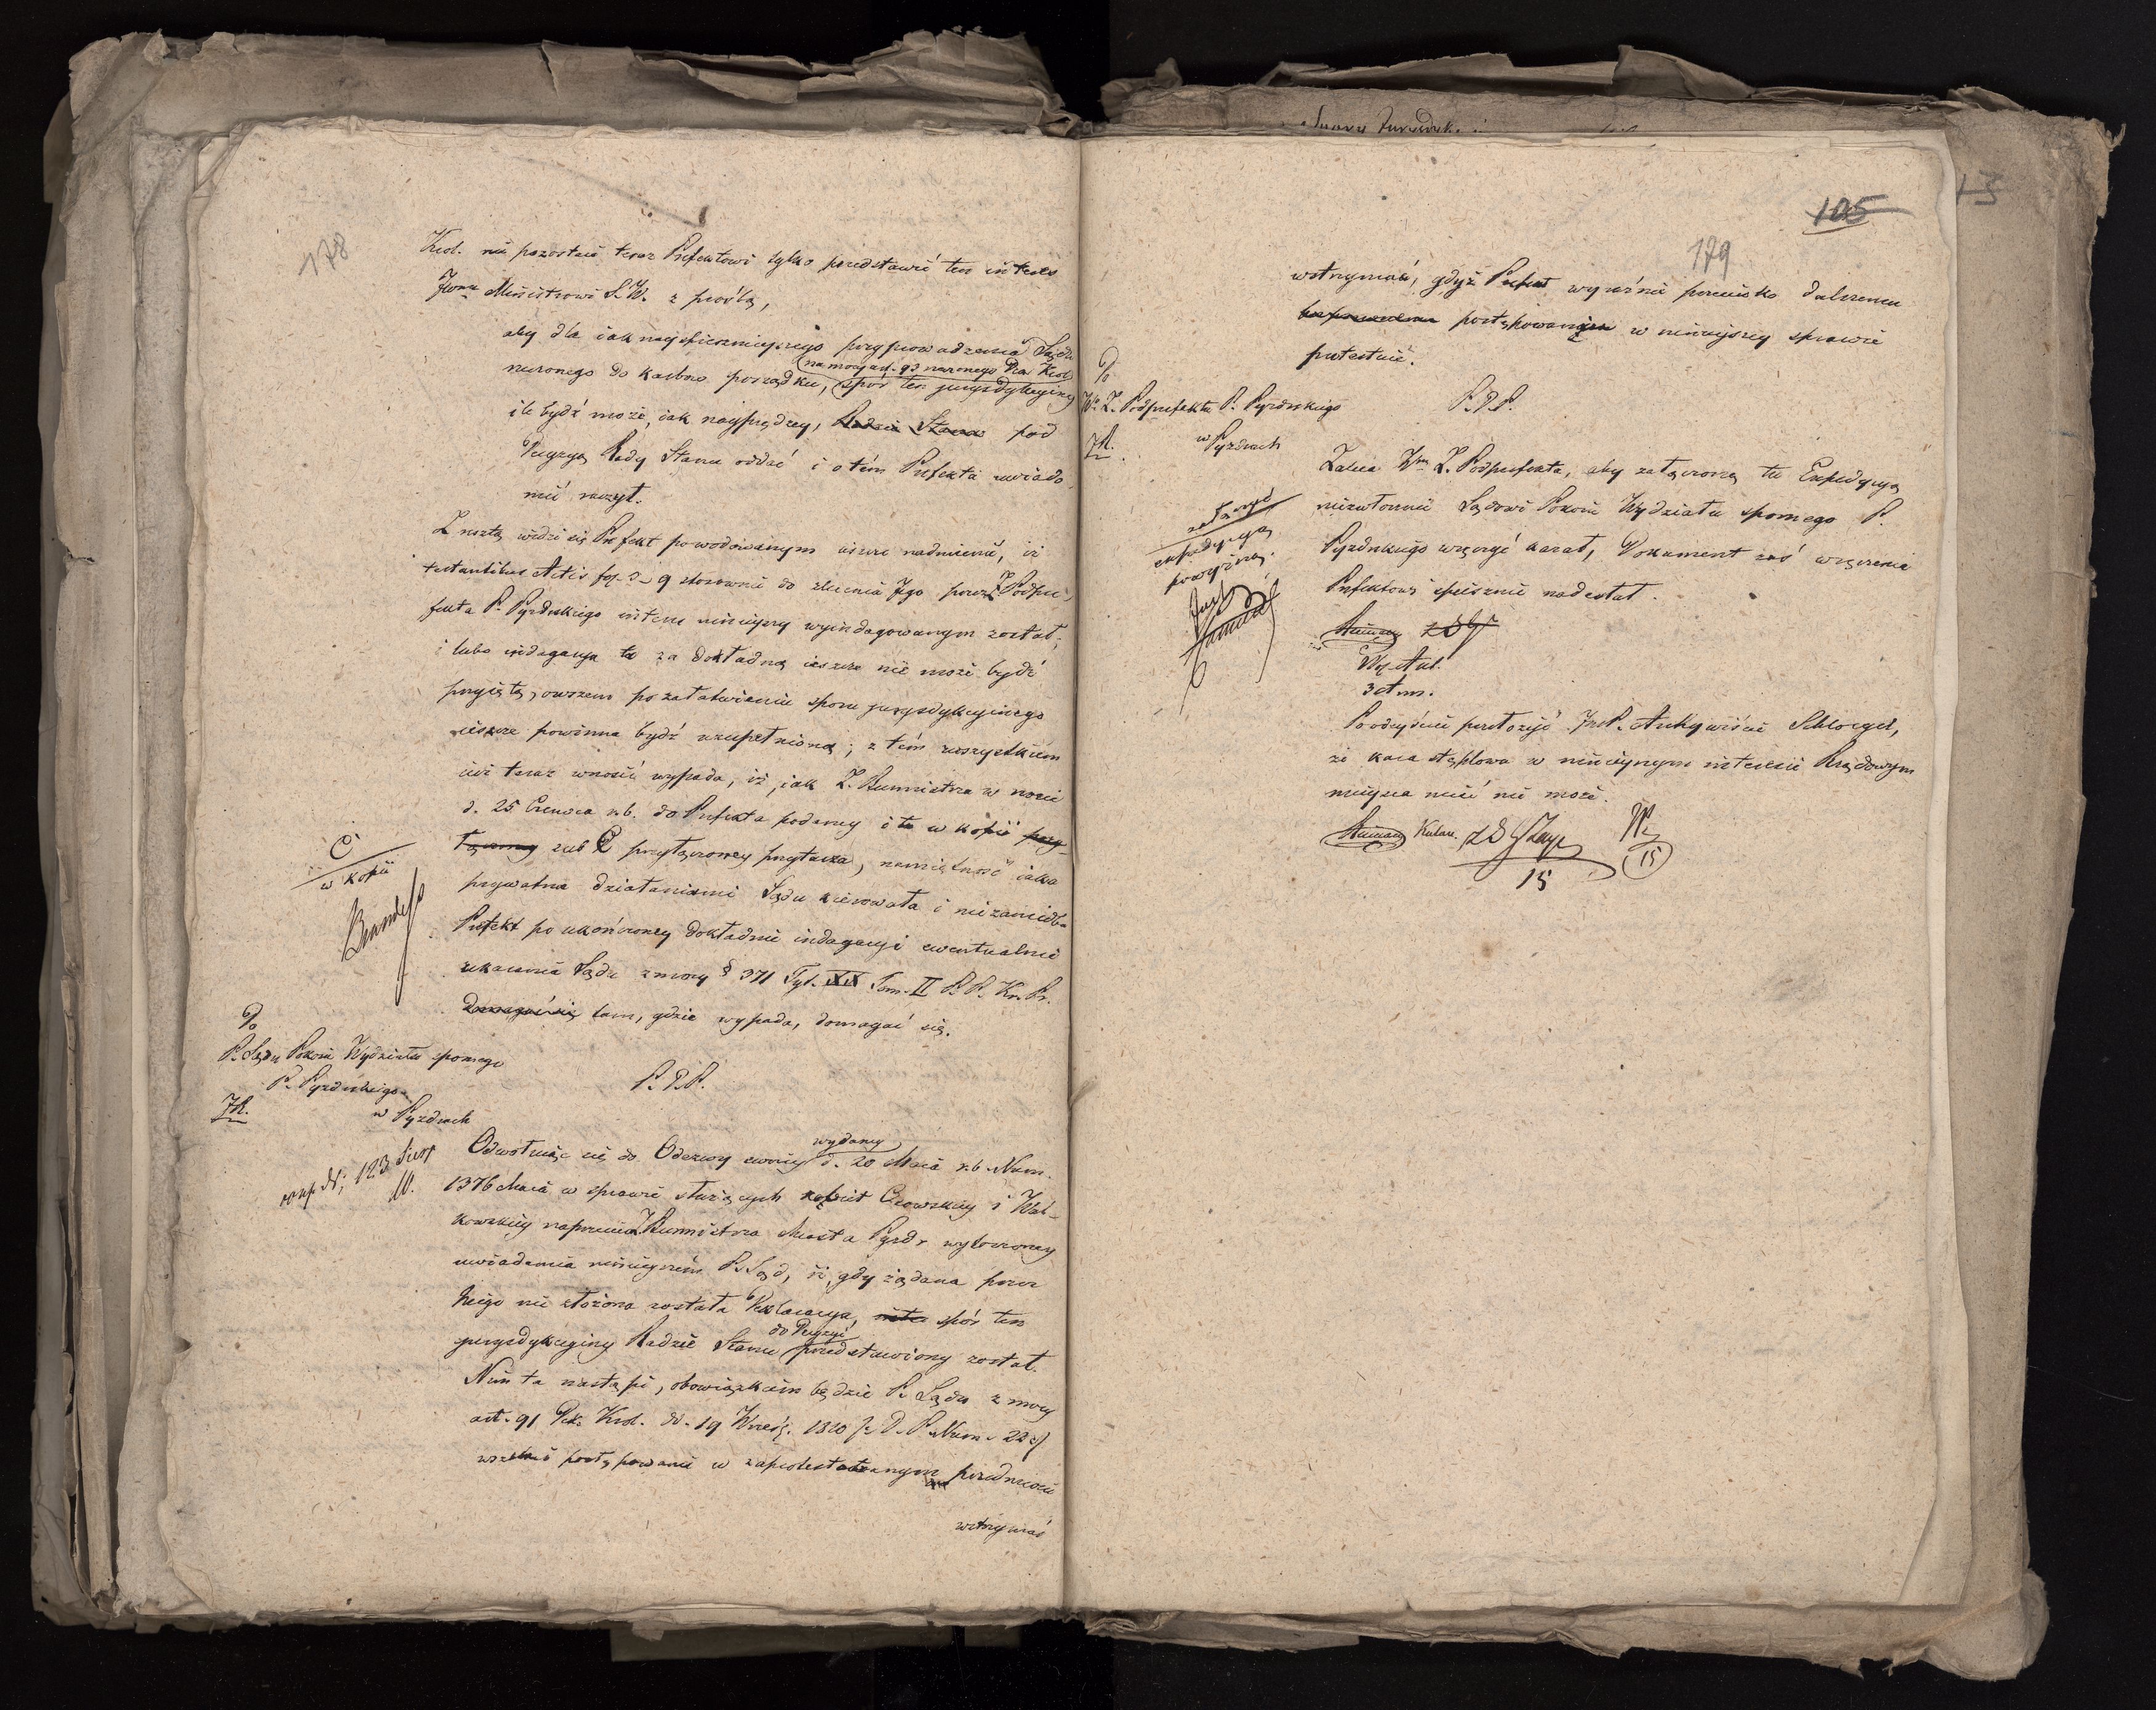 178
Krol. nie pozostaie teraz Prefektowi tylko przedstawić ten interes
JWmu Ministrowi S. W. z prośbą,
aby dla iak nayspiesznieyszego przyprowadzenia Sądu
na mocy art. 93 rzeczonego Dek. Krol.
rzeczonego do karbów porządku, spór ten jurysdykcyiny
ile bydź może, iak nayprędzey, Radzie Stanu pod
Decyzyą Rady Stanu oddać i o tém Prefekta uwiado
mić raczył.
Z resztą widzi się Prefekt powodowanym ieszcze nadmienić, iż
testantibus Actis fol. 2-9 stosownie do zlecenia Jego przez Z. Podpre-
fekta P. Pyzdrskiego interes ninieyszy wyindagowanym został;
i lubo indagacya ta za dokładną ieszcze nie może bydź
przyiętą, owszem po załatwieniu sporu jurysdykcyinego
ieszcze powinna bydź uzupełnioną; z tém wszystkiém
iuż teraz wnosić wypada, iż, iak Z. Burmistrza w nocie
d. 25 Czerwca r. b. do Prefekta podaney i tu w kopii przy-
łączoney sub C przyłączoney przytacza, namiętność iaka
prywatna działaniami Sądu kierowała i nie zaniedba
Prefekt po ukończoney dokładnie indagacyi ewentualnie
ukarania Sądu z mocy § 371 Tyt. XX Tom. II P. P. Kr. Pr.
domagać się tam, gdzie wypada, domagać się.
C
w kopii
Do
P. Sądu Pokoiu Wydziału spornego
P. Pyzdrskiego
w Pyzdrach
P. D. P.
wydaney
Odwołuiąc się do Odezwy swoiey d. 20 Maia r. b. Num.
1376 Maia w sprawie służących kobiet Czowskiey i Wal-
kowskiey naprzeciw Z. Burmistrza Miasta Pyzdr wytoczoney
uwiadamia ninieyszém P. Sąd, iż, gdy żądana przez
Niego nie złożona została Deklaracya, spór ten
do Decyzyi
jurysdykcyiny Radzie Stanu przedstawiony został.
Nim ta nastąpi, obowiązkiem będzie P. Sądu z mocy
art. 91 Dek. Krol. dd. 19 Wrześ. 1810 /: D. P. Num. 22 :/
wszelkie postępowanie w zaprotestowanym przedmiocie
wstrzymać
105
179
wstrzymać, gdyż Prefekt wyraźnie przeciwko dalszemu
postępowaniu w ninieyszey sprawie
protestuie.
Do
W. Z. Podprefekta P. Pyzdrskiego
w Pyzdrach
P. D. P.
Zaleca Wmu Z. Podprefekta, aby załączoną tu Expedycyą
niezwłocznie Sądowi Pokoiu Wydziału spornego P.
Pyzdrskiego wręczyć kazał, Dokument zaś wręczenia
Prefektowi spiesznie nadesłał.
załączyć
expedycyą
powyższą.
3 Aug.
Po odeyściu przełożyć Archywiście Schloegel,
że kara stęplowa w ninieyszym interesie Rządowym
mieysca mieć nie może.
15
15